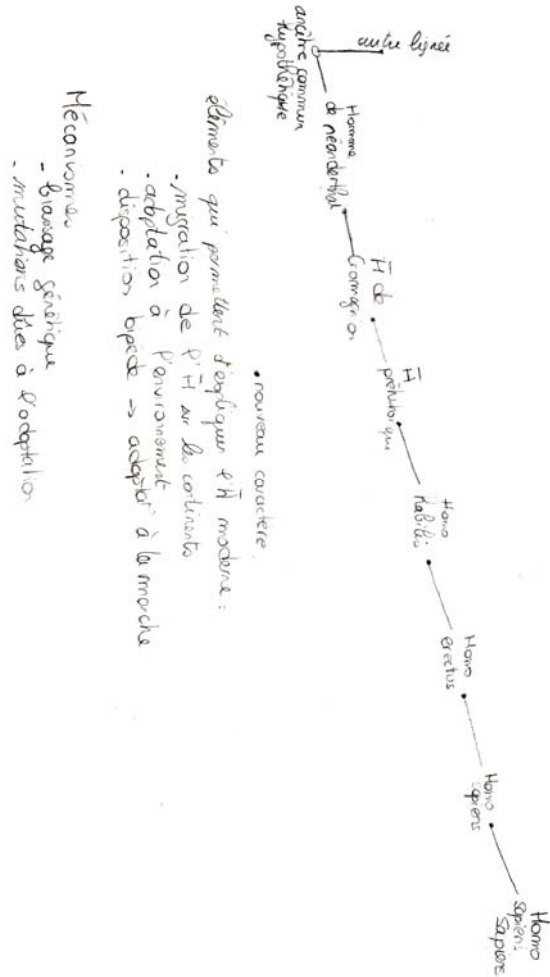 autre lignée
ancêtre commun
hypothétique
Homme
de néanderthal
H̄ de
Cromagnon
H̄
préhistorique
Homo
Habilis
Homo
erectus
Homo
sapiens
Homo
sapiens
sapiens
• nouveau caractère.
éléments qui permettent d'expliquer l'H̄ moderne :
. migration de l'H̄ sur les continents
. adaptation à l'environnement
. disposition bipède → adaptat° à la marche
Mécanismes
- brassage génétique
- mutations dûes à l'adaptation